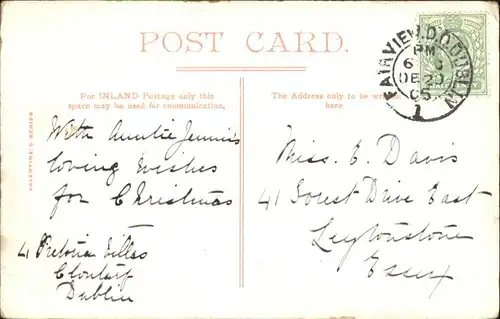 POST CARD.
FAIRVIEW.D.O DUBLIN
PM
DE 20
05
1
For INLAND Postage only this
space may be used for communication.
The Address only to be written
here
VALENTINE'S SERIES
With Auntie Jennie's
loving wishes
for Christmas
41 Victoria Villas
Clontarf
Dublin
Miss. E. Davis
41 Forest Drive East
Leytonstone
Essex